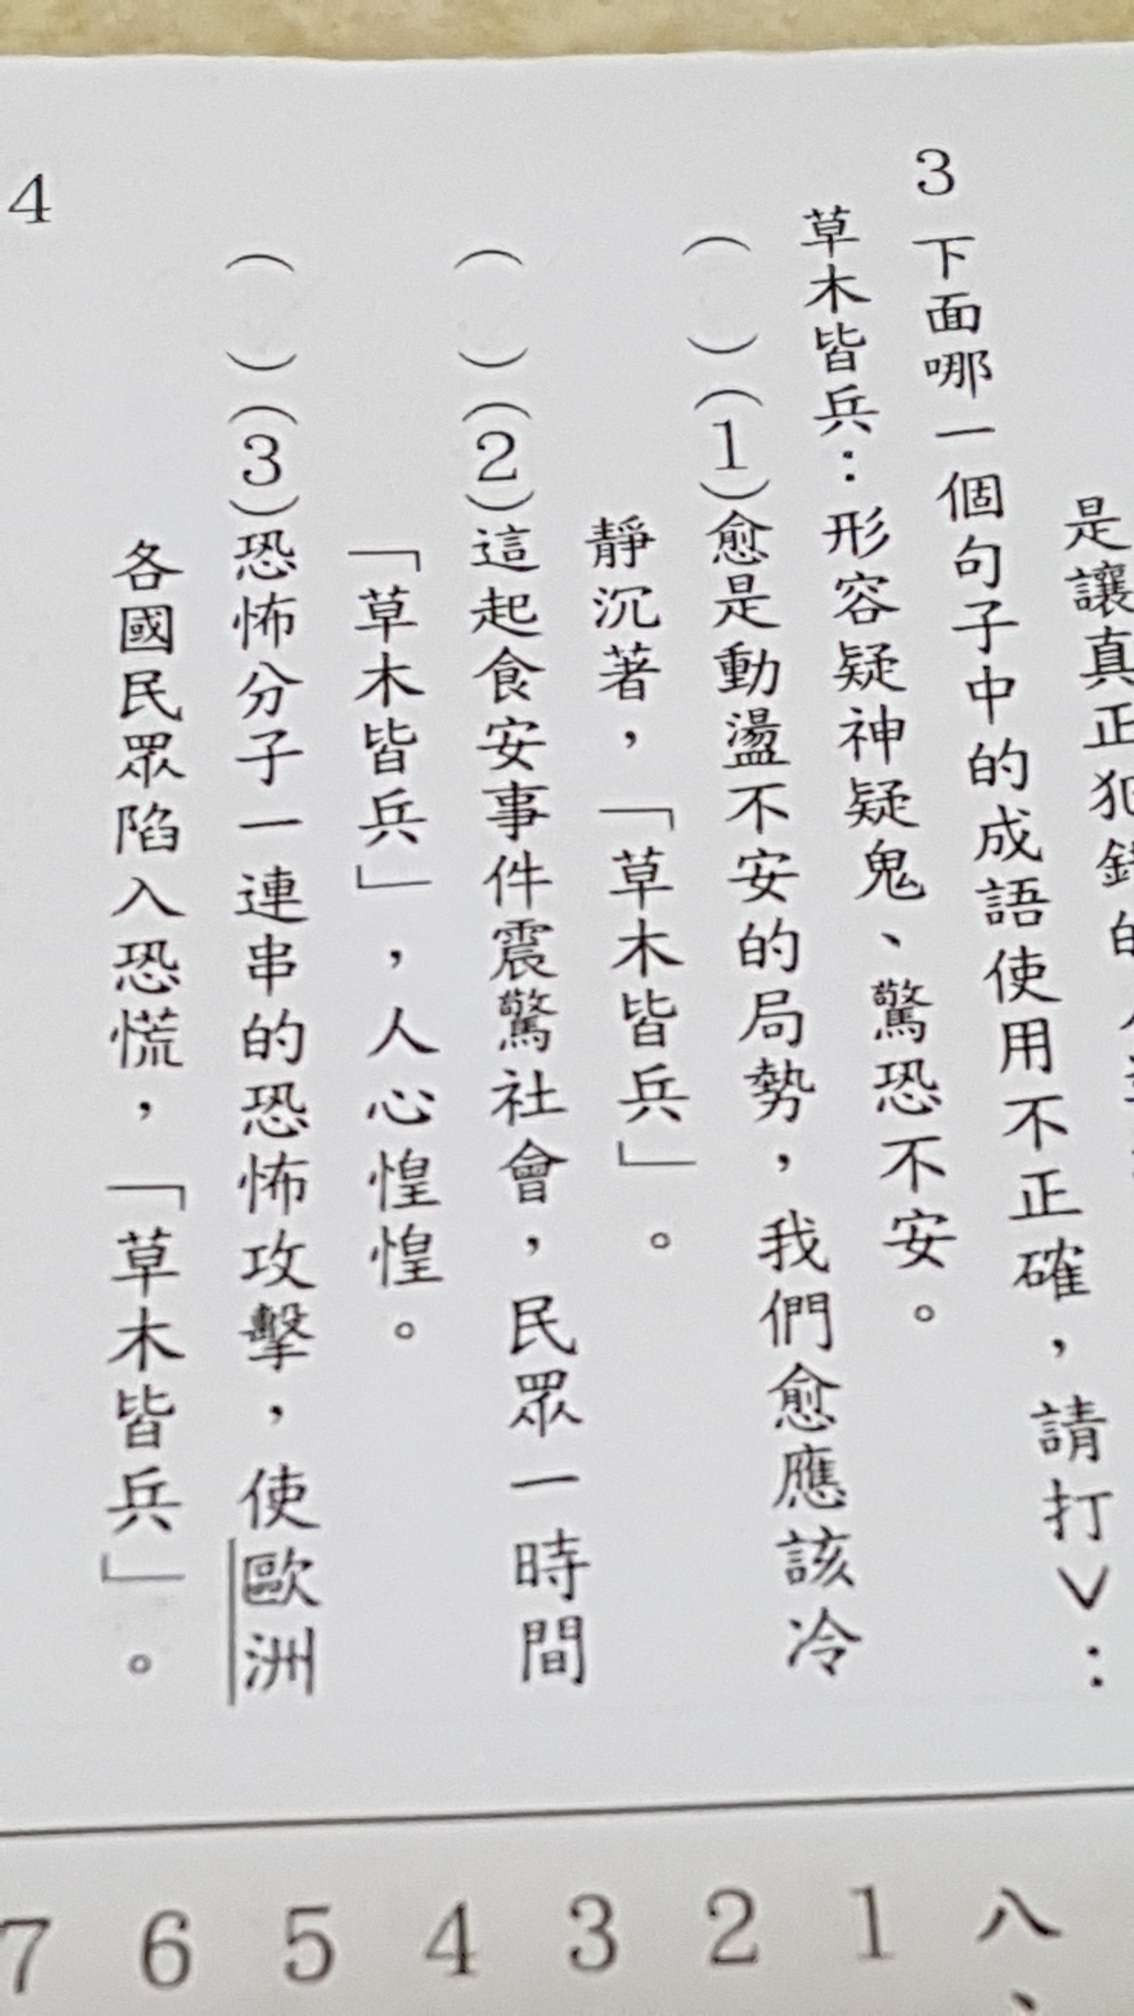 是讓真正犯錯的
3 下面哪一個句子中的成語使用不正確，請打ˇ：
草木皆兵：形容疑神疑鬼、驚恐不安。
（　）(1)愈是動盪不安的局勢，我們愈應該冷
靜沉著，「草木皆兵」。
（　）(2)這起食安事件震驚社會，民眾一時間
「草木皆兵」，人心惶惶。
（　）(3)恐怖分子一連串的恐怖攻擊，使歐洲
各國民眾陷入恐慌，「草木皆兵」。
4
八、
1
2
3
4
5
6
7